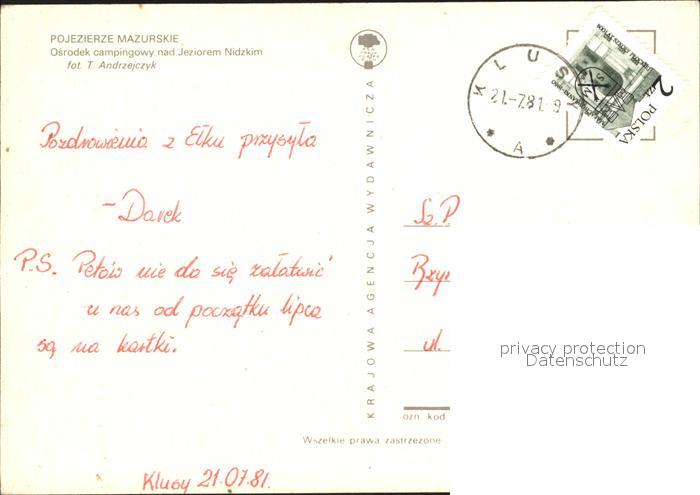 POJEZIERZE MAZURSKIE
Ośrodek campingowy nad Jeziorem Nidzkim
fot. T. Andrzejczyk
Pozdrowienia z Ełku przysyła
-Darek
P.S. Petów nie da się załatwić
u nas od początku lipca
są na kartki.
Klusy 21.07.81.
KRAJOWA AGENCJA WYDAWNICZA
KLUSY
21.-7.81.
A
2 ZŁ
POLSKA
Sz. P
ul.
ozn kod
Wszelkie prawa zastrzeżone
privacy protection
Datenschutz